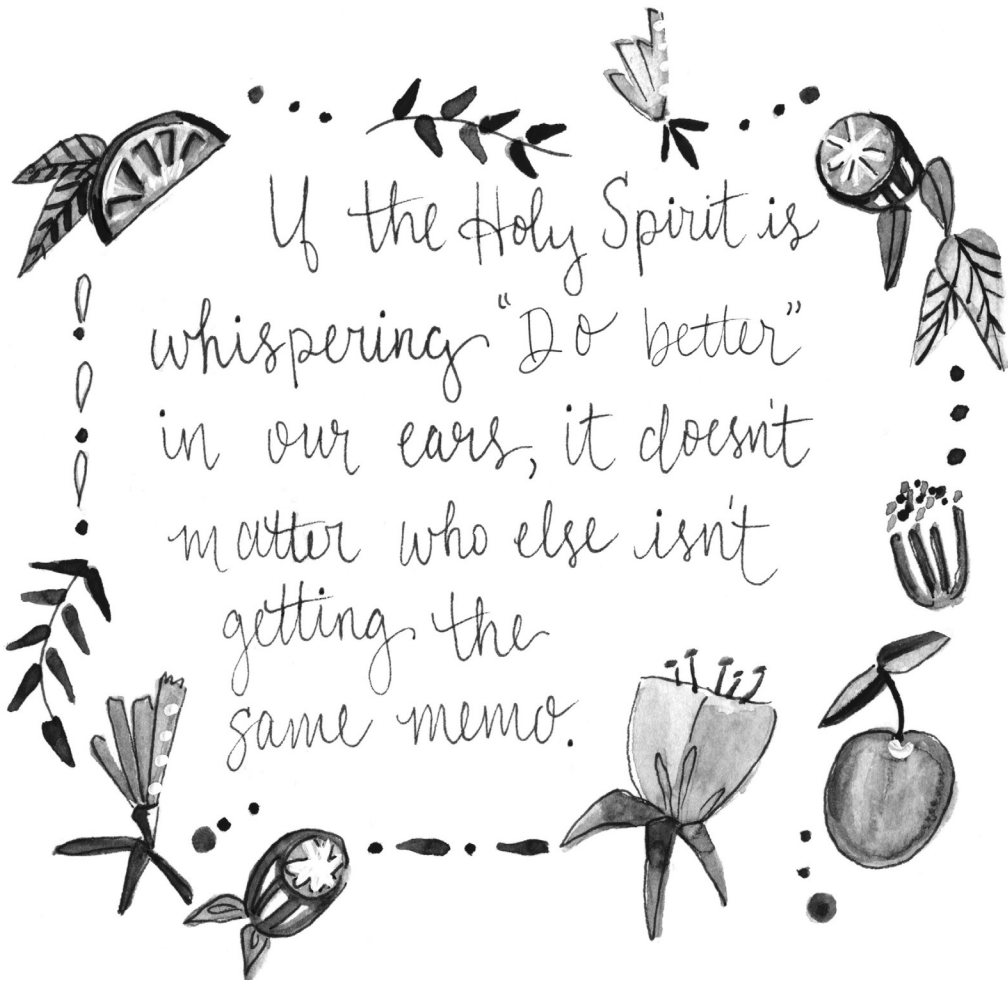 If the Holy Spirit is
whispering “Do better”
in our ears, it doesn't
matter who else isn't
getting the
same memo.